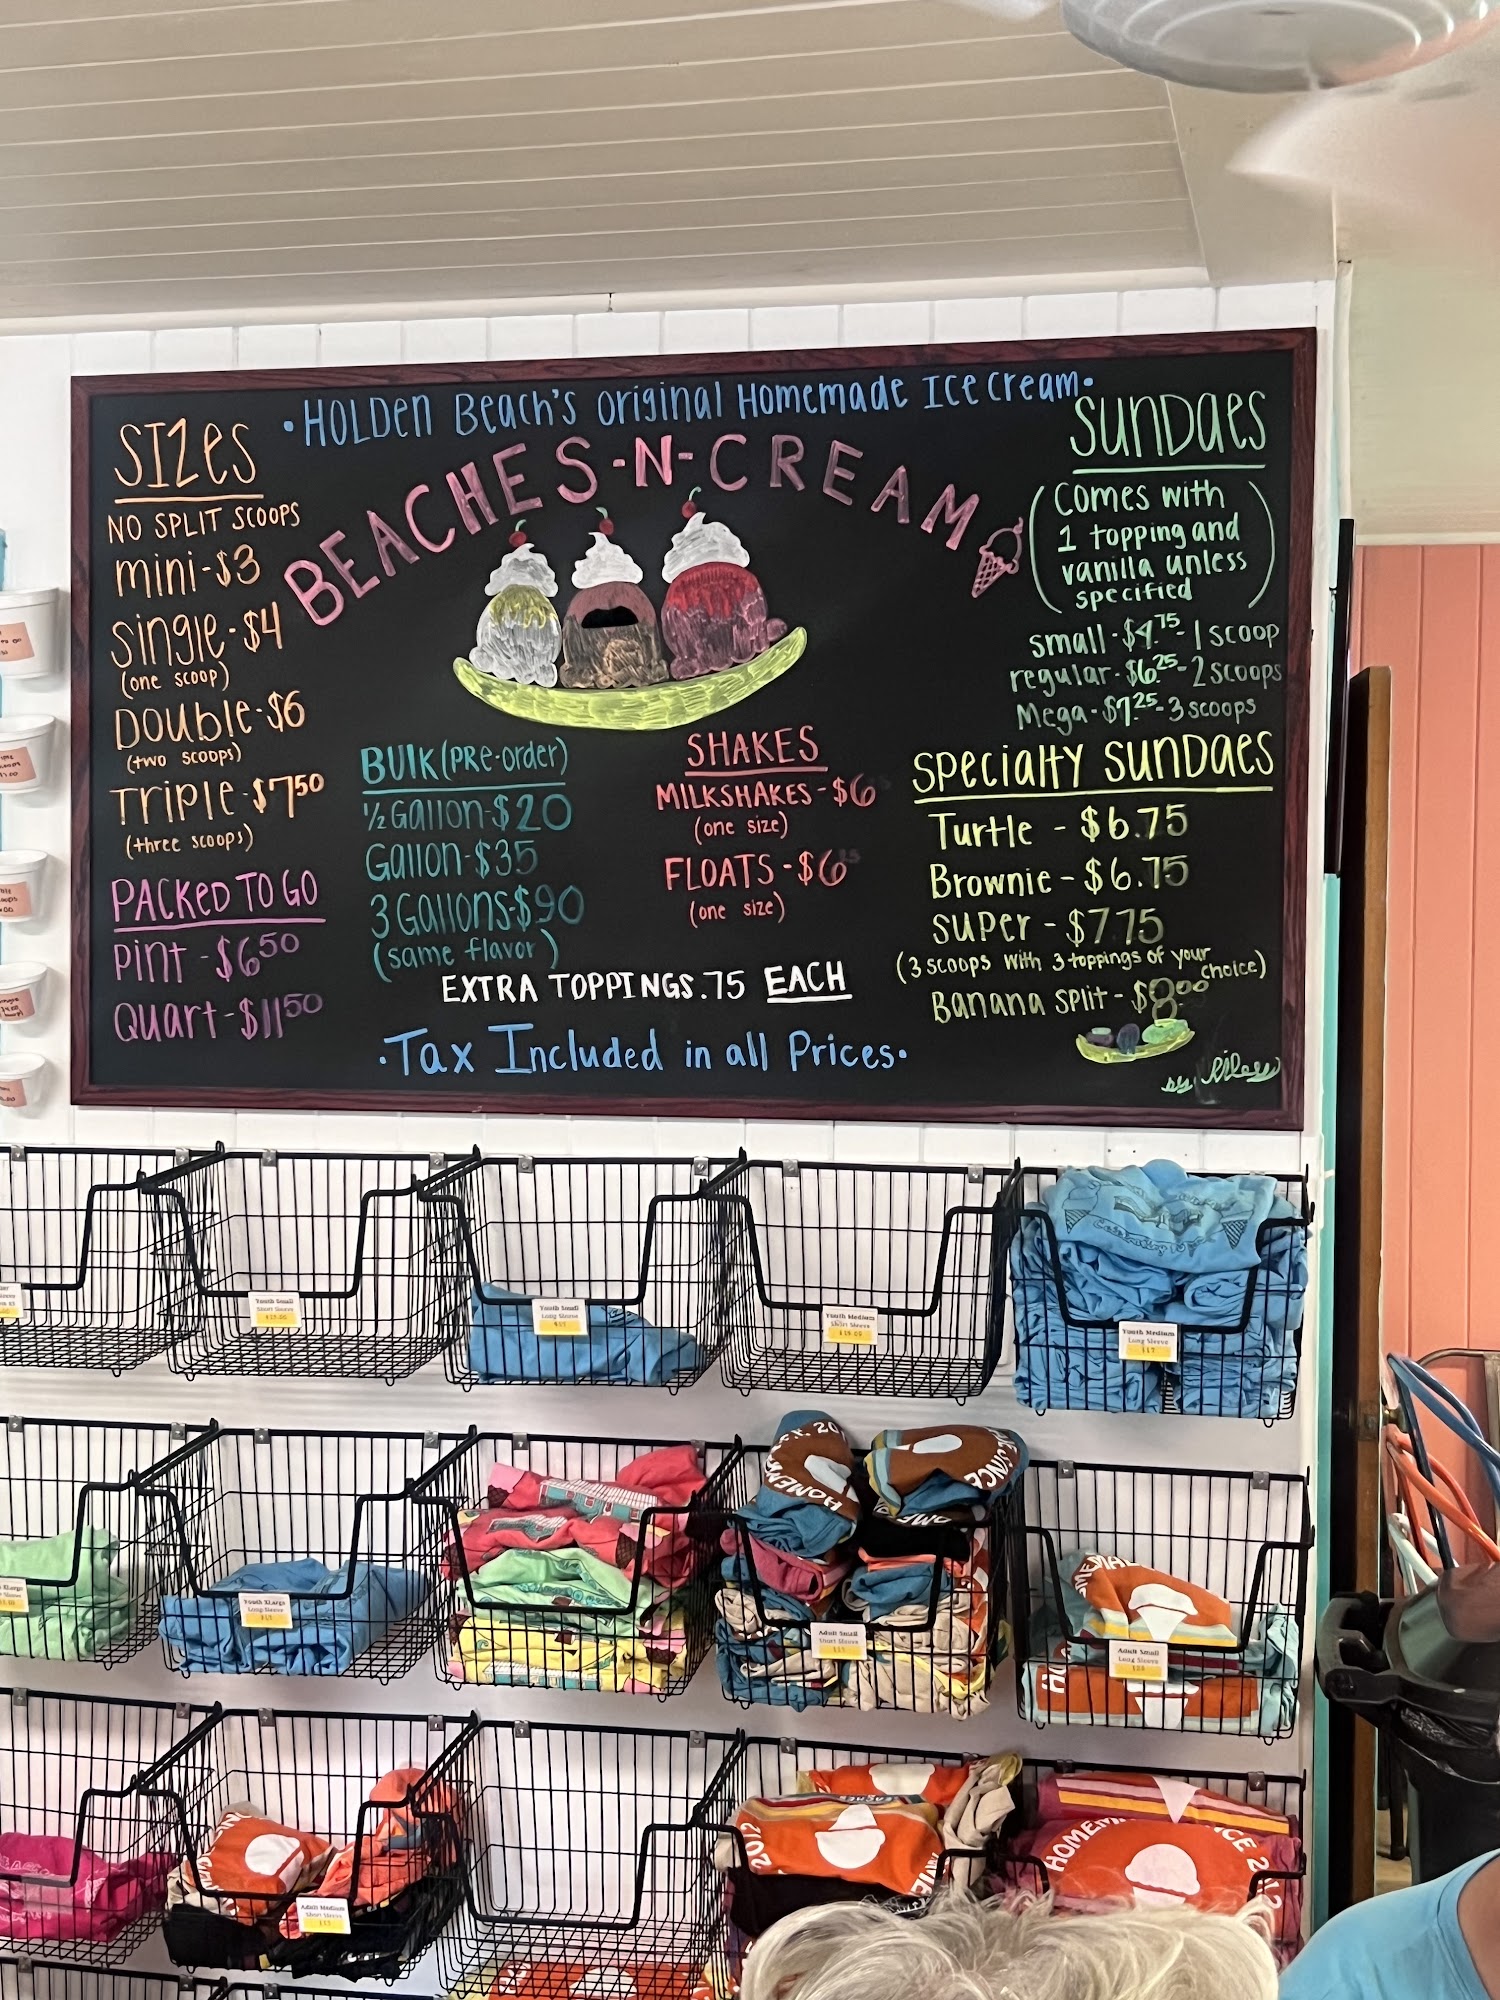 •HOLDEN BEACH'S ORIGINAL HOMEMADE ICE CREAM•
BEACHES-N-CREAM
SIZES
NO SPLIT SCOOPS
mini-$3
Single-$4
(one scoop)
Double-$6
(two scoops)
Triple-$7.50
(three scoops)
PACKED TO GO
Pint-$6.50
Quart-$11.50
BULK (PRE-order)
1/2 Gallon-$20
Gallon-$35
3 Gallons-$90
(same flavor)
SHAKES
MILKSHAKES-$6
(one size)
FLOATS-$6
(one size)
EXTRA TOPPINGS .75 EACH
•Tax Included in all Prices•
Sundaes
(Comes with
1 topping and
vanilla unless
specified)
small-$4.75-1 scoop
regular-$6.25-2 scoops
Mega-$7.25-3 scoops
Specialty Sundaes
Turtle - $6.75
Brownie - $6.75
Super - $7.75
(3 scoops with 3 toppings of your choice)
Banana Split - $8.00
by Riley
Youth Small
Short Sleeve
Youth Small
Long Sleeve
Youth Medium
Short Sleeve
Youth Medium
Long Sleeve
$17
Youth XLarge
Long Sleeve
Adult Small
Short Sleeve
Adult Small
Long Sleeve
Adult Medium
Short Sleeve
HOMEM
SINCE
2012
HOMEM
ICE 2